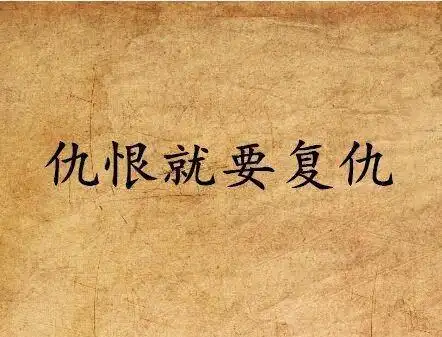 仇恨就要复仇